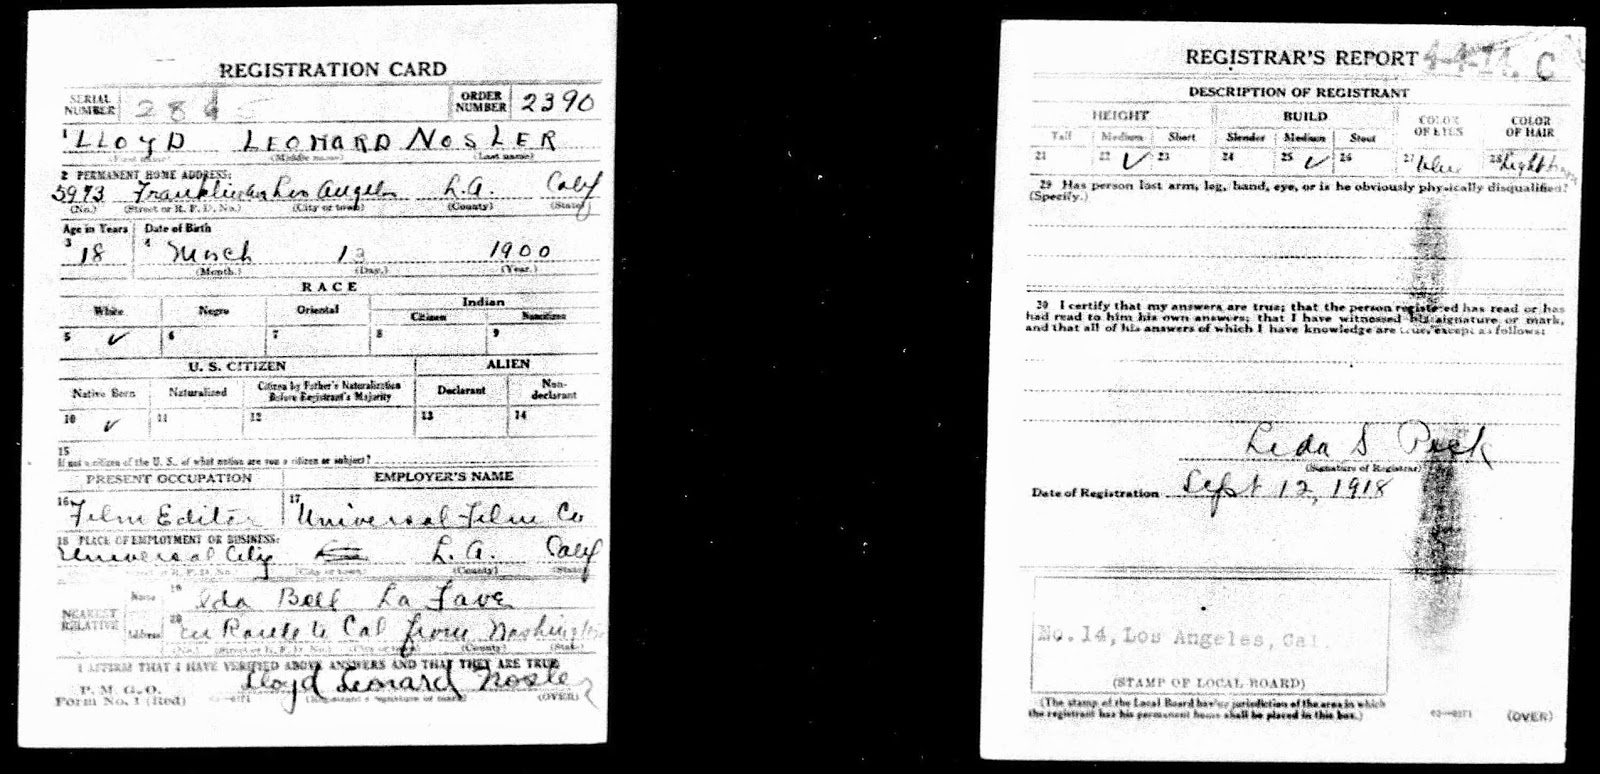 REGISTRATION CARD
SERIAL NUMBER 284 ORDER NUMBER 2390
1 LLOYD LEONARD NOSLER
(First name) (Middle name) (Last name)
2 PERMANENT HOME ADDRESS:
5973 Franklin Av Los Angeles L.A. Calif
(No.) (Street or R. F. D. No.) (City or town) (County) (State)
Age in Years Date of Birth
3 18 4 March 1900
(Month.) (Day.) (Year.)
RACE
White Negro Oriental Indian
Citizen Noncitizen
5 ✓ 6 7 8 9
U. S. CITIZEN ALIEN
Native Born Naturalized Citizen by Father's Naturalization Before Registrant's Majority Declarant Non-declarant
10 ✓ 11 12 13 14
15
If not a citizen of the U. S., of what nation are you a citizen or subject?
PRESENT OCCUPATION EMPLOYER'S NAME
16 Film Editor 17 Universal Film Co
18 PLACE OF EMPLOYMENT OR BUSINESS:
Universal City L.A. Calif
R. F. D. No. (City or town) (County) (State)
NEAREST RELATIVE Name 19 Ida Bell La Fave
Address 20 en Route to Cal from Washington
(No.) (Street or R. F. D. No.) (City or town) (County) (State)
I AFFIRM THAT I HAVE VERIFIED ABOVE ANSWERS AND THAT THEY ARE TRUE
P. M. G. O.
Form No. 1 (Red) Lloyd Leonard Nosler
(Registrant's signature or mark) (OVER)
REGISTRAR'S REPORT 4-4-14. C
DESCRIPTION OF REGISTRANT
HEIGHT BUILD COLOR OF EYES COLOR OF HAIR
Tall Medium Short Slender Medium Stout
21 22 ✓ 23 24 25 ✓ 26 27 blue 28 Light brown
29 Has person lost arm, leg, hand, eye, or is he obviously physically disqualified?
(Specify.)
30 I certify that my answers are true; that the person registered has read or has
had read to him his own answers; that I have witnessed his signature or mark,
and that all of his answers of which I have knowledge are true, except as follows:
Leda S Peck
(Signature of Registrar)
Date of Registration Sept 12, 1918
No. 14, Los Angeles, Cal.
(STAMP OF LOCAL BOARD)
(The stamp of the Local Board having jurisdiction of the area in which
the registrant has his permanent home shall be placed in this box.)
(OVER)